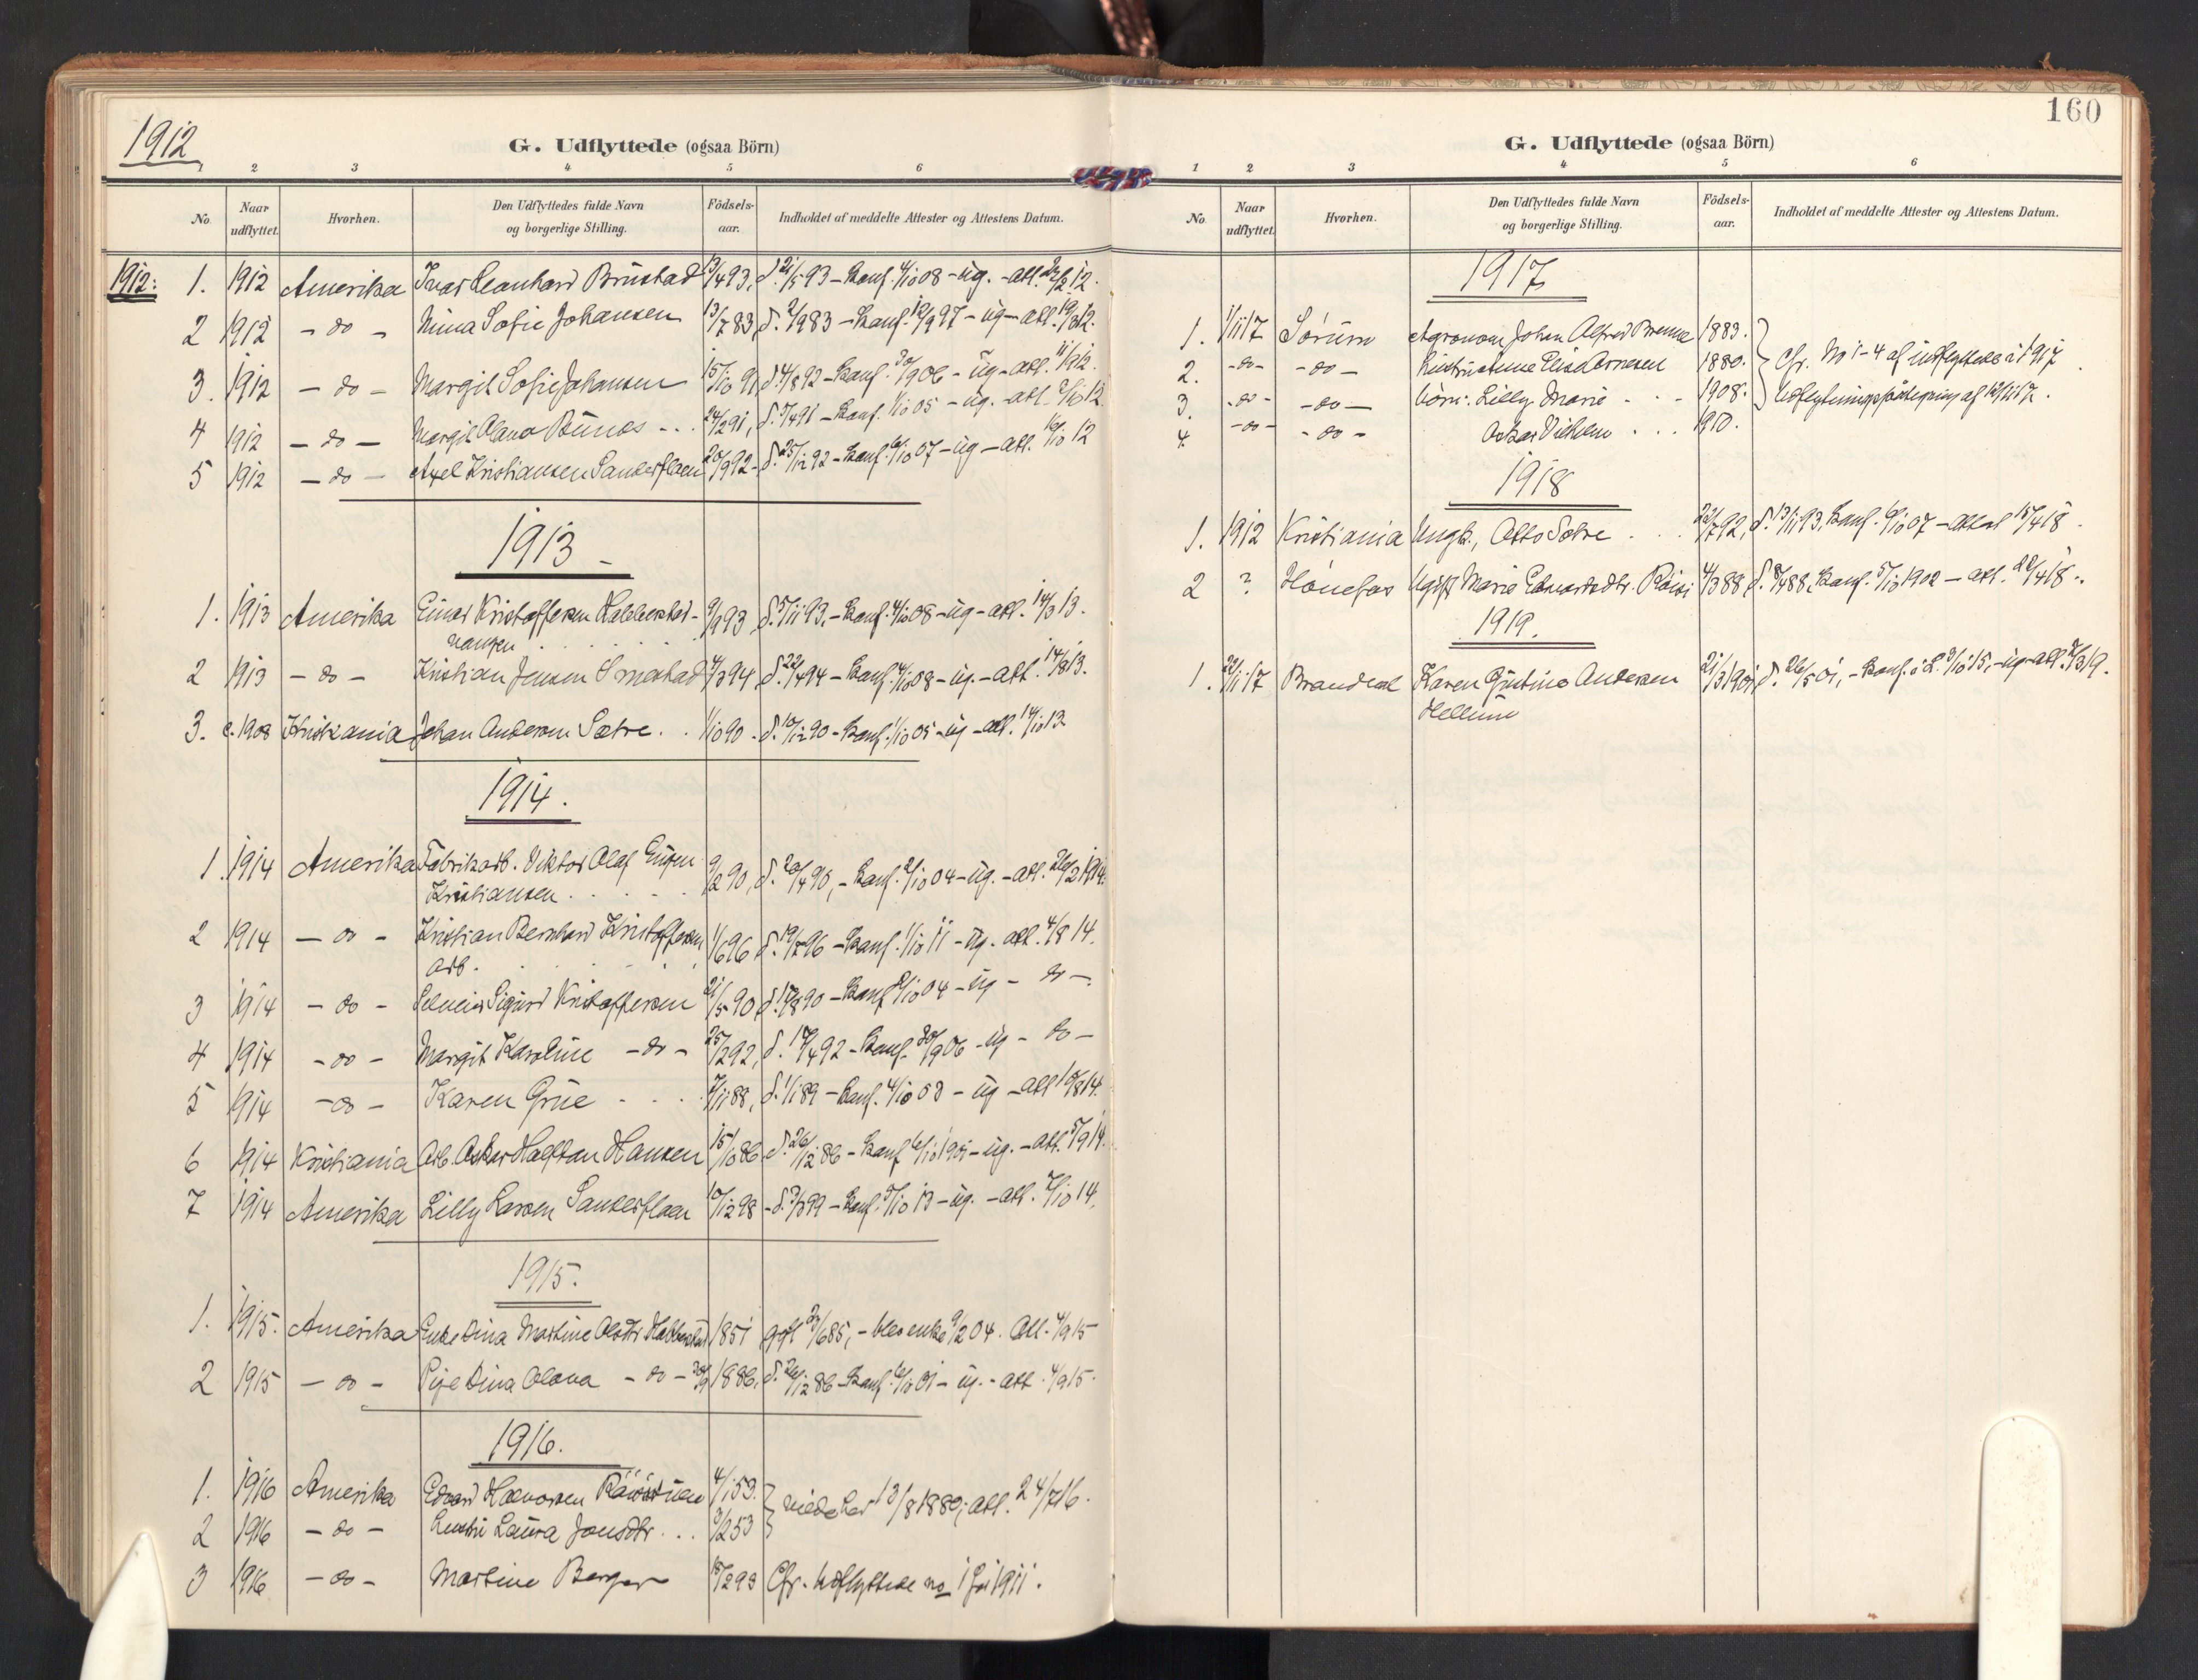 1912
G. Udflyttede (ogsaa Börn)
1 2 3 4 5 6
No. Naar udflyttet. Hvorhen. Den Udflyttedes fulde Navn og borgerlige Stilling. Födsels-aar. Indholdet af meddelte Attester og Attestens Datum.
1912: 1. 1912 Amerika Ivar Leonhard Brustad 13/4 93, d. 21/5 93 - Konf. 4/10 08 - ug. - att. 2/2 12.
2 1912 - do - Nina Sofie Johansen 13/7 83, d. 2/9 83 - Konf. 12/9 97 - ug - att. 19/3 12.
3. 1912 - do - Margit Sofie Johansen 15/10 91, d. 4/8 92 - Konf. 30/9 06 - ug - att. 11/9 12.
4 1912 - do - Margit Olava Bunes - .. 24/2 91, d. 5/4 91 - Konf. 1/10 05 - ug. - att. 2/10 12.
5 1912 - do - Axel Kristiansen Sanderfloen 20/9 92 - d. 25/12 92 - Konf. 6/10 07 - ug - att. 16/10 12
1913
1. 1913 Amerika Einar Kristoffersen Habberstad-
vangen . . . . 9/9 93 d. 5/11 93, - Konf. 4/10 08 - ug - att. 14/3 13.
2 1913 - do - Kristian Jensen Smestad 4/3 94, d. 22/4 94 - Konf. 4/10 08 - ug. - att. 14/8 13.
3. c. 1908 Kristiania Johan Andersen Sætre . . 1/10 90 - d. 10/12 90 - Konf. 1/10 05 - ug - att. 14/10 13
1914.
1. 1914 Amerika Fabrikarb. Viktor Olaf Eugen
Kristiansen . . . . . 9/2 90, d. 20/4 90, - Konf. 2/10 04 - ug. - att. 26/2 1914.
2 1914 - do - Kristian Bernhard Kristoffersen
arb. . . . . 1/6 96 d. 19/7 96 - Konf. 1/10 11 - ug. att. 4/8 14.
3 1914 - do - Selmer Sigurd Kristoffersen 21/5 90 d. 17/8 90 - Konf 2/10 04 - ug - do -
4 1914 - do - Margit Karoline - do - 25/2 92, d. 17/4 92 - Konf. 30/9 06 - ug - do -
5 1914 - do - Karen Grue - . . . 7/11 88, d. 1/1 89 - Konf. 4/10 03 - ug - att 10/8 14.
6 1914 Kristiania Arb. Oskar Halfdan Hansen 15/10 86 d. 26/12 86 - Konf 6/10 1901 - ug. - att. 5/9 14.
7 1914 Amerika Lilly Larsen Sanderfloen 10/12 98 - d. 3/4 99 - Konf. 5/10 13 - ug. - att. 7/10 14.
1915.
1. 1915. Amerika Enke Dina Martine Olsdtr Habberstad 1851 gift 23/6 85, - blev enke 9/2 04. Att. 4/9 15
2 1915 - do - Pige Dina Olava - do - 20/9 1886, d. 26/12 86 - Konf. 6/10 01 - ug. - att. 4/9 15.
1916.
1. 1916 Amerika Edvard Halvorsen Råisstuen 4/1 53.
2 1916 - do - Hustru Laura Jonsdtr. . . . 3/2 53 } viede her 13/8 1880; att. 24/7 16.
3 1916 - do - Martine Berger 15/2 93 Cfr. Udflyttede no 1 for 1911.
160
G. Udflyttede (ogsaa Börn)
1 2 3 4 5 6
No. Naar udflyttet. Hvorhen. Den Udflyttedes fulde Navn og borgerlige Stilling. Födsels-aar. Indholdet af meddelte Attester og Attestens Datum.
1917
1. 1/11 17 Sörum Agronom Johan Alfred Brenne 1883.
2. - do - - do - Hustru Arnesen 1880. } Cfr. No 1-4 af indflyttede i 1917
3. - do - - do - börn: Lilly Marie - - - 1908. } Udflytningspåtegning af 12/11 17.
4. - do - - do - Oskar Vilhelm . . . 1910.
1918
1. 1912 Kristiania Ungk., Otto Sætre . . . 22/7 92, d. 13/11 93, Konf. 6/10 07 - attest 15/4 18.
2 ? Hönefos Ugift Marie Edvardsdtr. Råiss 4/3 88, d. 8/4 88, Konf. 5/10 1902 - att. 22/4 18.
1919.
1. 22/1 17 Brandval Karen Gustine Andersen
Hellum 21/3 1901, d. 26/5 01, - Konf. i L. 3/10 15, - ug - att. 7/3 19.